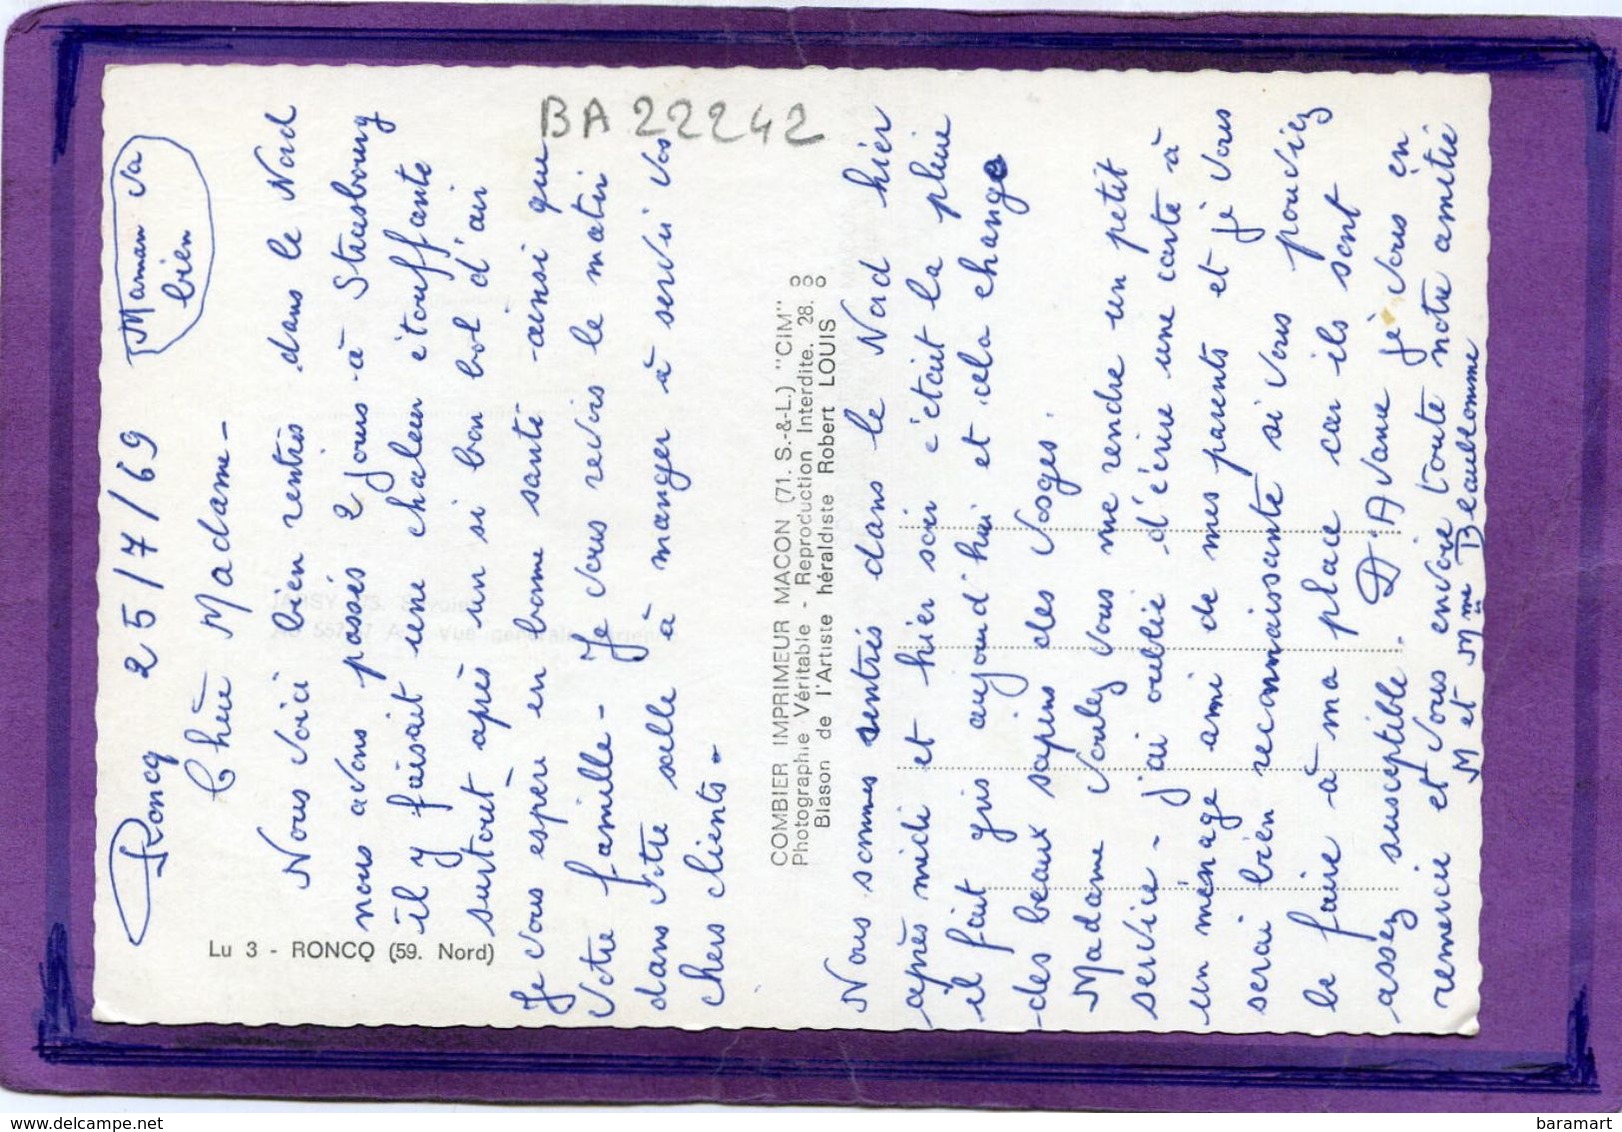 BA 22242
Roncq 25/7/69
Maman va
bien
Chère Madame -
Nous voici bien rentrés dans le Nord
nous avons passés 2 jours à Strasbourg
il y faisait une chaleur étouffante
surtout après un si bon bol d'air
Je vous espère en bonne santé ainsi que
votre famille - Je vous revois le matin
dans votre salle à manger à servir vos
chers clients -
Lu 3 - RONCQ (59. Nord)
COMBIER IMPRIMEUR MACON (71. S.-&-L.) "CIM"
Photographie Véritable - Reproduction Interdite. 28.
Blason de l'Artiste héraldiste Robert LOUIS
Nous sommes rentrés dans le Nord hier
après midi et hier soir c'était la pluie
il fait gris aujourd'hui et cela change
des beaux sapins des Vosges.
Madame voulez vous me rendre un petit
service - j'ai oublié d'écrire une carte à
un ménage ami de mes parents et je vous
serai bien reconnaissante si vous pouviez
le faire à ma place car ils sont
assez susceptible. D'Avance je vous en
remercie et vous envoie toute notre amitié
M et Mme Beaublomme
baramart
delcampe.net